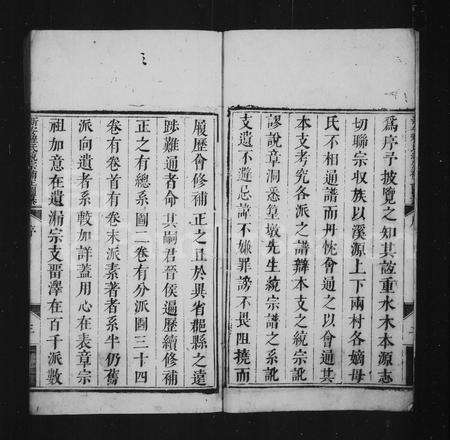 為序予披覽之知其誼重水木本源志
切聯宗收族以溪源上下兩村各嫡母
氏不相通譜而丹忱會通之以會通其
本支考究各派之譜辯本支之統宗訛
謬說章洞悉篁墩先生統宗譜之系訛
支遺不避忌諱不嫌罪謗不畏阻撓而
履歷會修補正之且於異省郡縣之遠
陟難通者命其嗣君晉侯遍歷續修補
正之有總系圖二卷有分派圖三十四
卷有卷首有卷末派素著者系半仍舊
派向遺者系較加詳蓋用心在表章宗
祖加意在遺漏宗支晉澤在百千派數